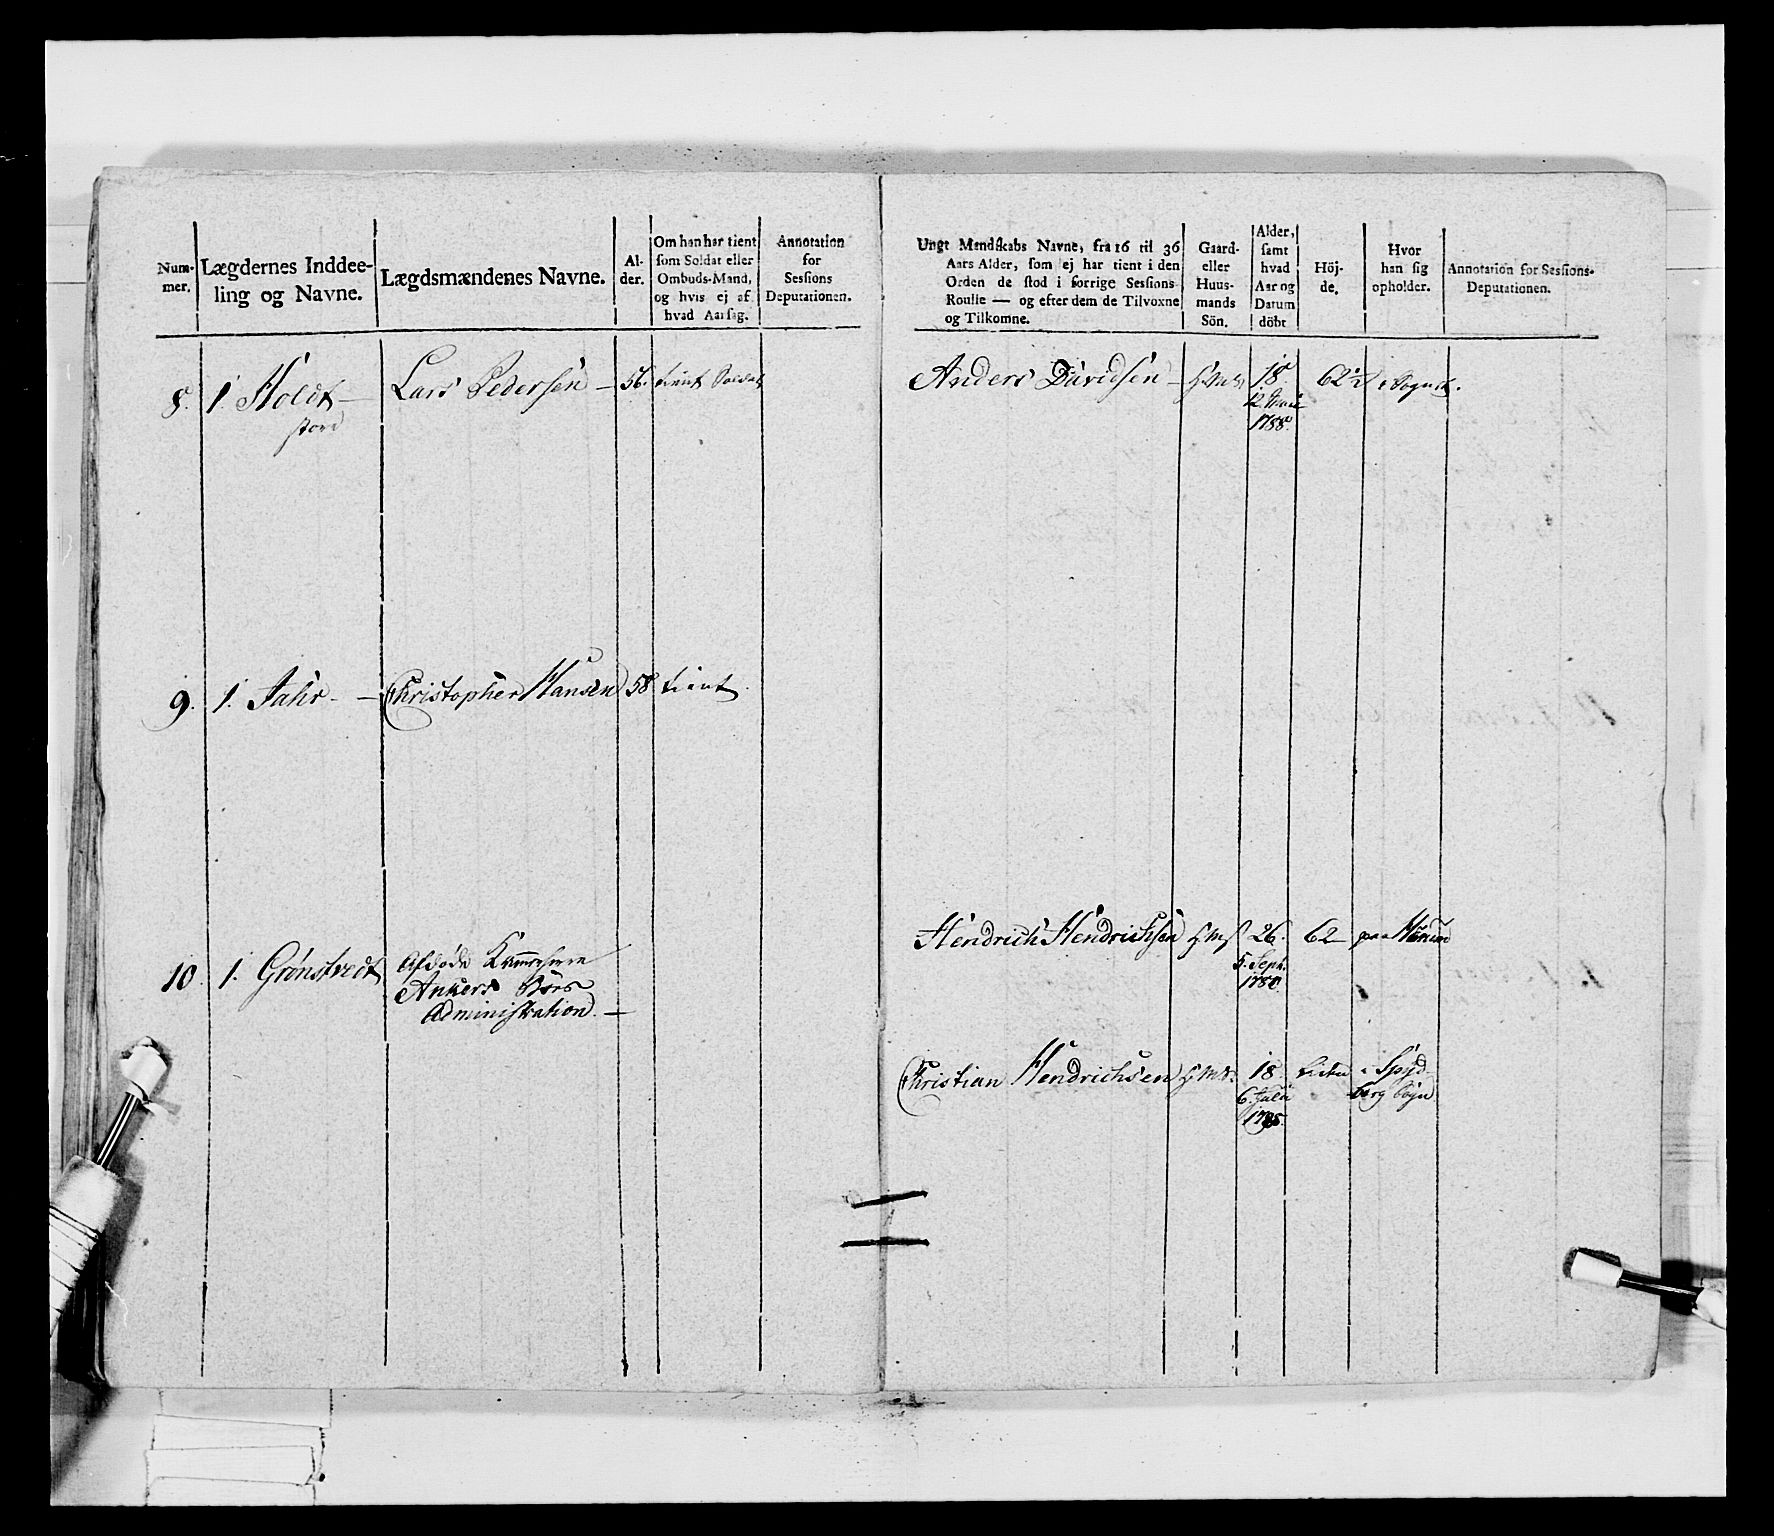 Num-
mer.
Lægdernes Inddee-
ling og Navne.
Lægdsmændenes Navne.
Al-
der.
Om han har tient
som Soldat eller
Ombuds-Mand,
og hvis ej af
hvad Aarsag.
Annotation
for
Sessions
Deputationen.
8. 1. Holdt — Lars Pedersen — 56. tient Soldat
store
9. 1. Jahr — Christopher Hansen 58 tient.
10. 1. Grønstvedt Afdøde Kammerherre
Ankers Boes
Administration. —
Ungt Mandskabs Navne, fra 16 til 36
Aars Alder, som ej har tient i den
Orden de stod i forrige Sessions-
Roulle — og efter dem de Tilvoxne
og Tilkomne.
Gaard-
eller
Huus-
mands
Sön.
Alder,
samt
hvad
Aar og
Datum
döbt
Höj-
de.
Hvor
han sig
opholder.
Annotation for Sessions-
Deputationen.
Anders Davidsen — 18. 62½ i Sognet.
1788.
Hendrich Hendrichsen 26. 62 — paa
5. Sept.
1780.
Christian Hendrichsen 18. liden i Spyd-
6. Julii berg Sogn
1788.